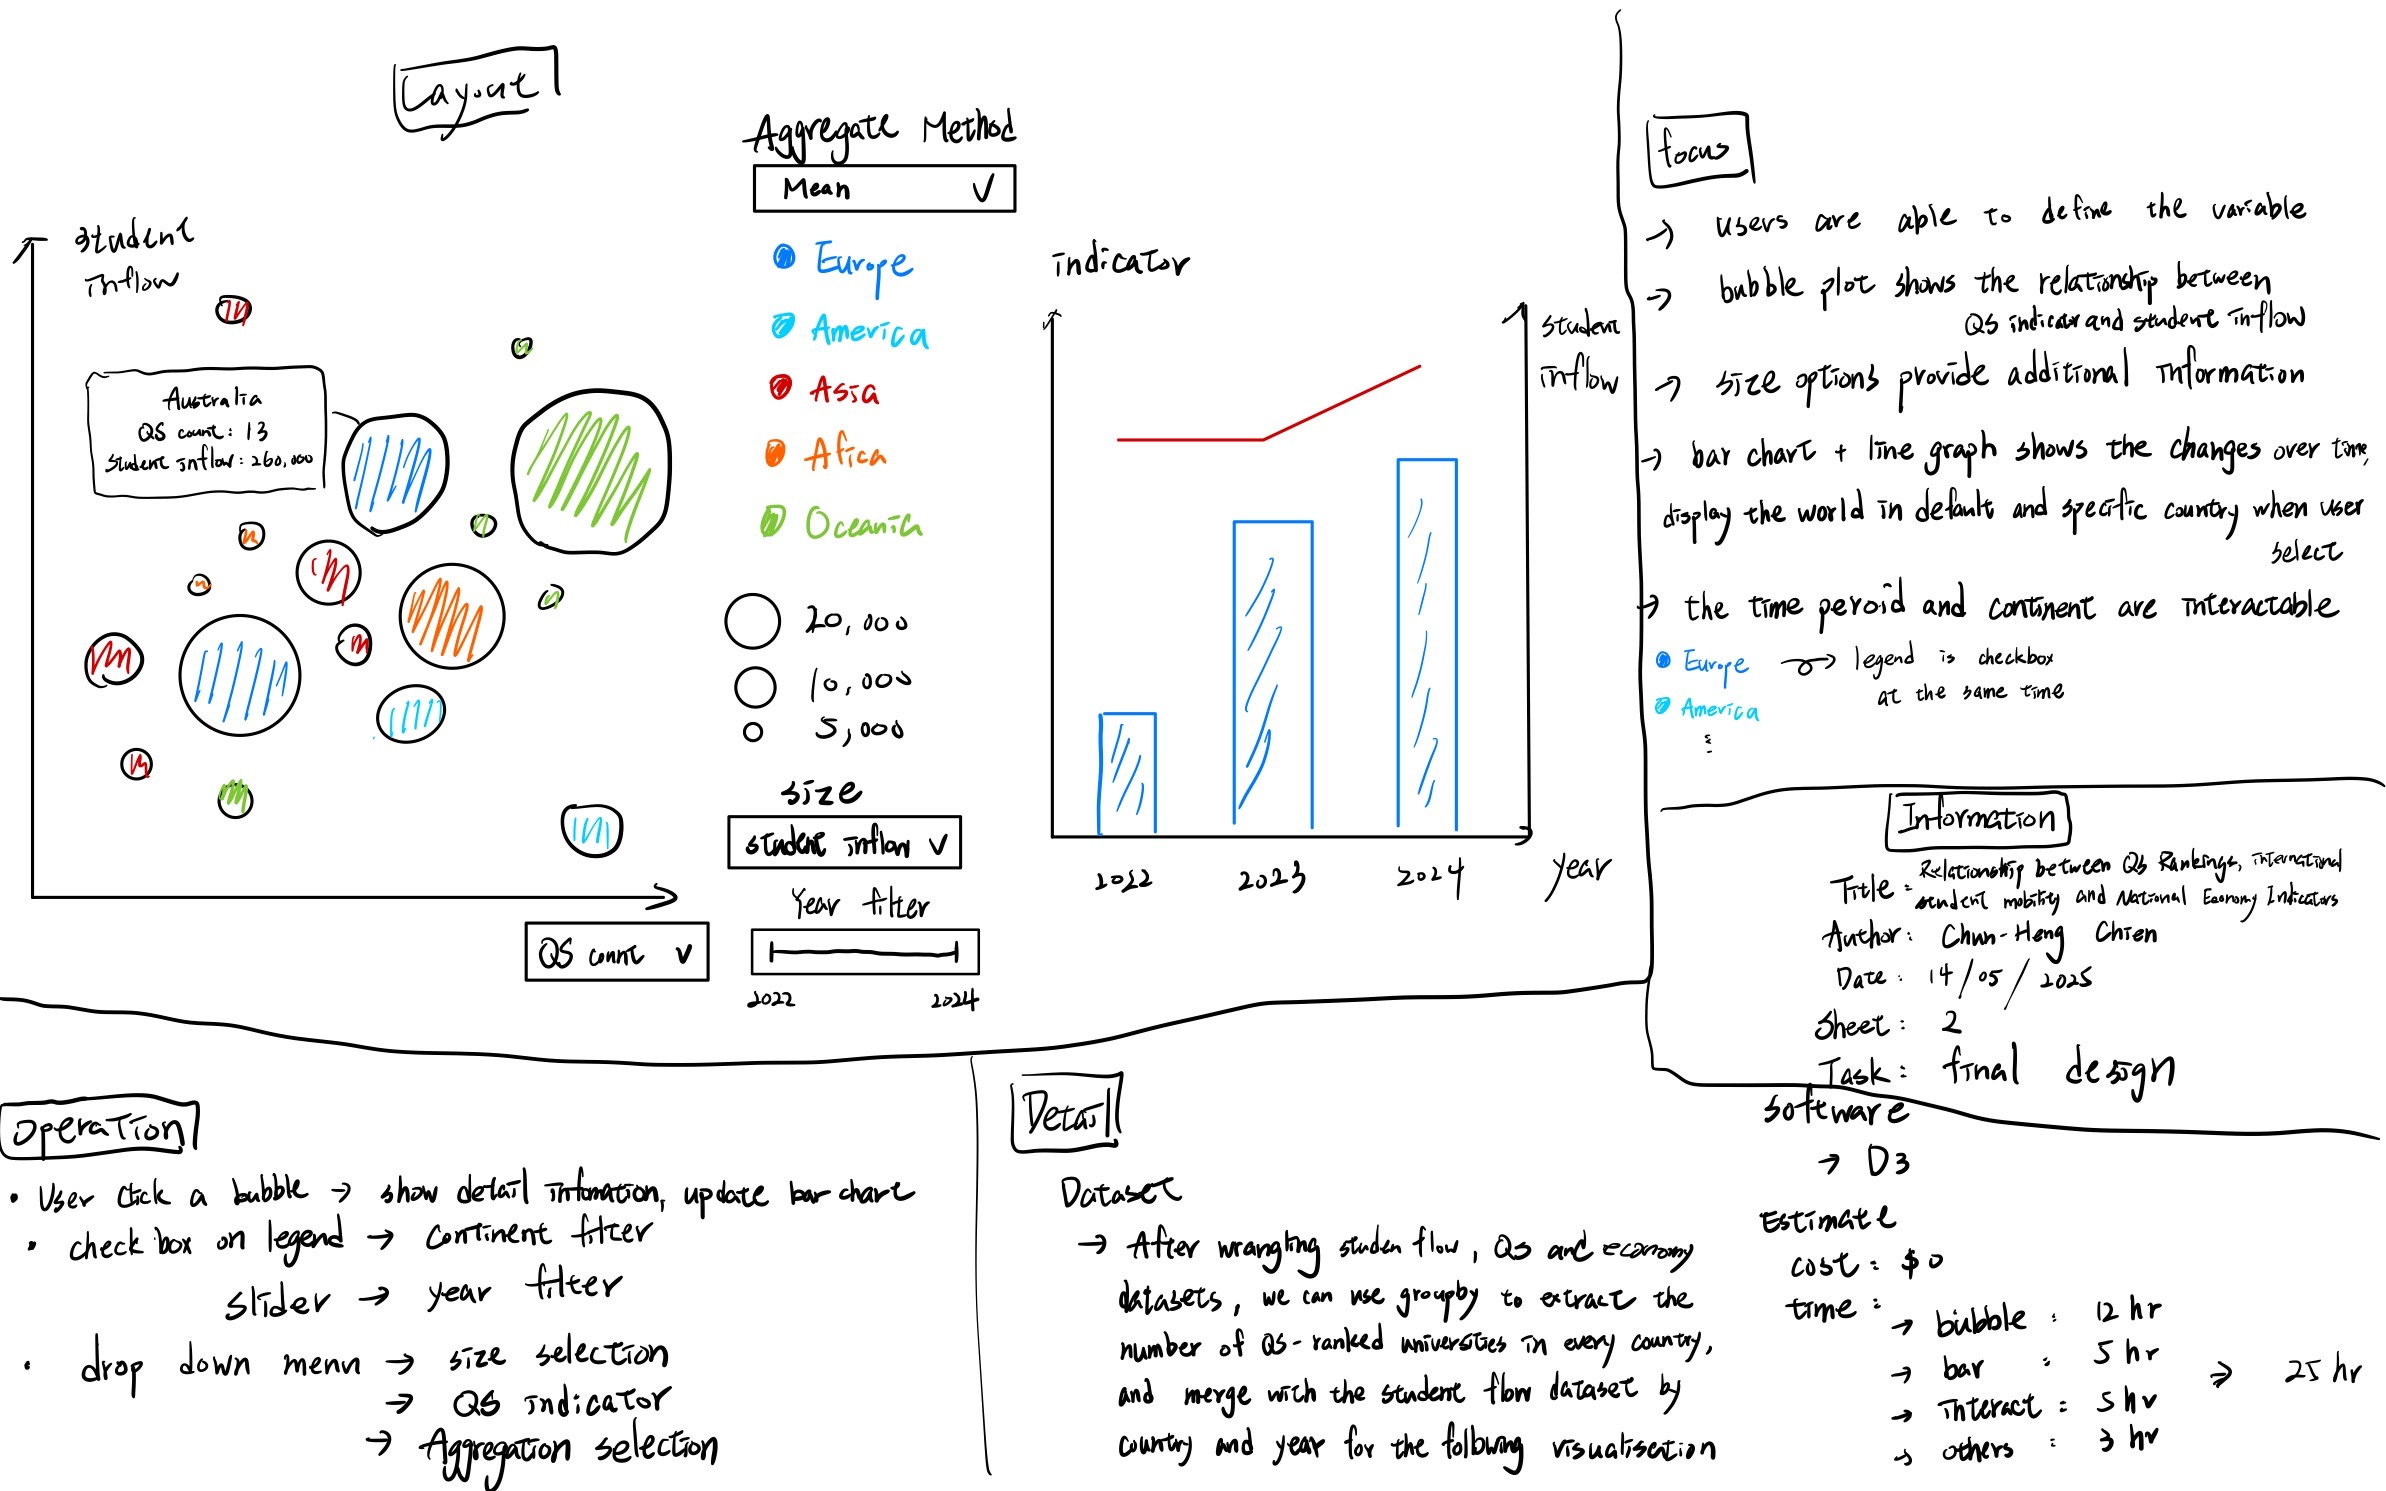 Layout
Aggregate Method
Mean
Europe
America
Asia
Afica
Oceania
20,000
10,000
5,000
size
student inflow
Year filter
2022
2024
student
inflow
Australia
QS count: 13
student inflow: 260,000
QS count
indicator
student
inflow
2022
2023
2024
year
focus
→ users are able to define the variable
→ bubble plot shows the relationship between
QS indicator and student inflow
→ size options provide additional information
→ bar chart + line graph shows the changes over time,
display the world in default and specific country when user
select
→ the time peroid and continent are interactable
Europe → legend is checkbox
America at the same time
⋮
Information
Title: Relationship between QS Rankings, international
student mobility and National Economy Indicators
Author: Chun-Heng Chien
Date: 14/05/2025
Sheet: 2
Task: final design
operation
• User click a bubble → show detail infomation, update bar chart
• check box on legend → continent filter
slider → year filter
• drop down menu → size selection
→ QS indicator
→ Aggregation selection
Detail
Dataset
→ After wrangling studen flow, QS and economy
datasets, we can use groupby to extract the
number of QS-ranked universities in every country,
and merge with the student flow dataset by
country and year for the following visualisation
software
→ D3
Estimate
cost: $0
time:
→ bubble: 12 hr
→ bar: 5 hr
→ interact: 5 hr
→ others: 3 hr
⇒ 25 hr